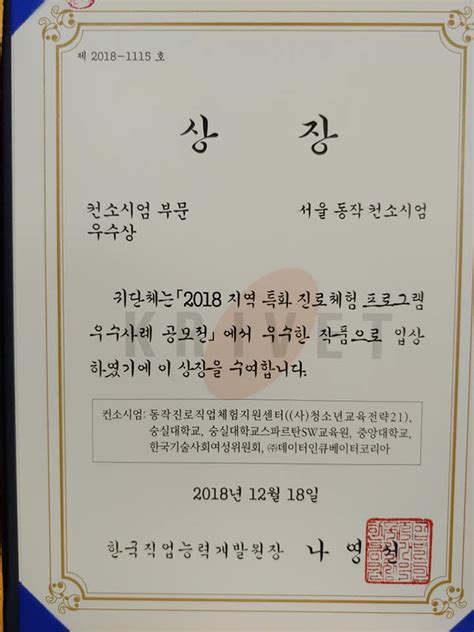 제 2018-1115 호
상 장
컨소시엄 부문 서울 동작 컨소시엄
우수상
귀단체는「2018 지역 특화 진로체험 프로그램
우수사례 공모전」에서 우수한 작품으로 입상
하였기에 이 상장을 수여합니다.
KRIVET
컨소시엄: 동작진로직업체험지원센터((사)청소년교육전략21),
숭실대학교, 숭실대학교스파르탄SW교육원, 중앙대학교,
한국기술사회여성위원회, ㈜데이터인큐베이터코리아
2018년 12월 18일
한국직업능력개발원장 나 영 선